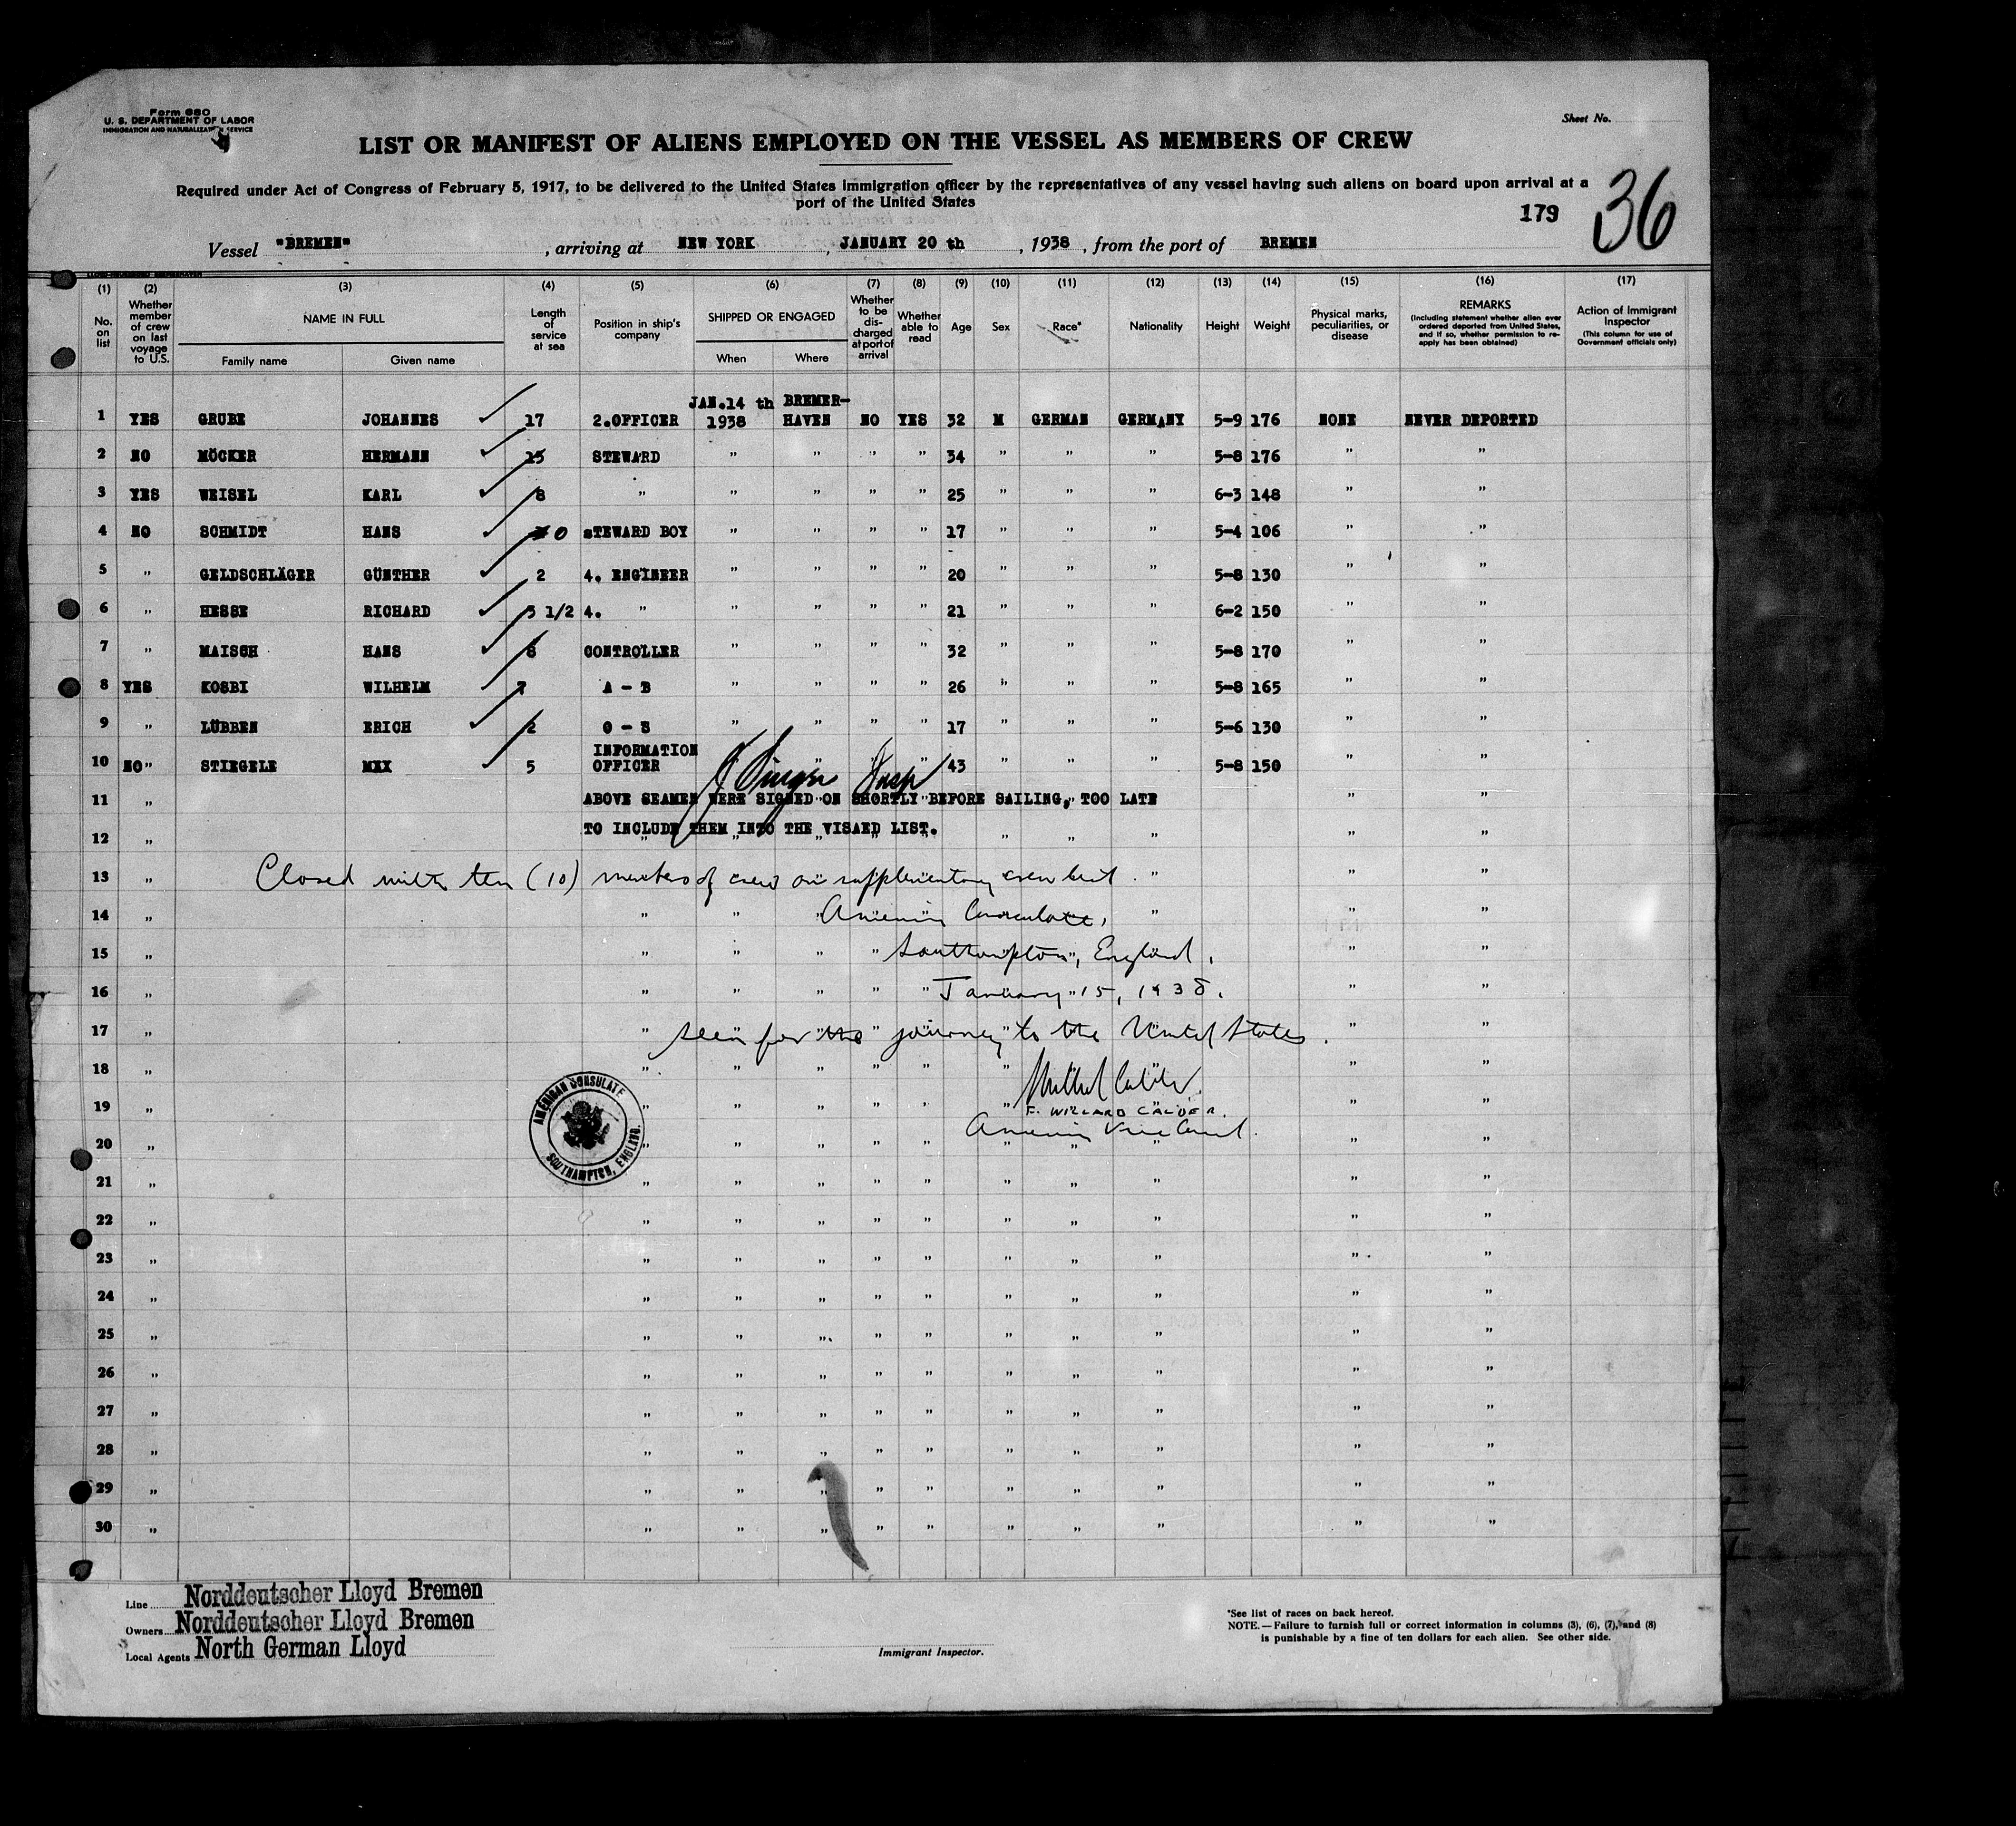 Form 680
U. S. DEPARTMENT OF LABOR
IMMIGRATION AND NATURALIZATION SERVICE
Sheet No.
LIST OR MANIFEST OF ALIENS EMPLOYED ON THE VESSEL AS MEMBERS OF CREW
Required under Act of Congress of February 5, 1917, to be delivered to the United States immigration officer by the representatives of any vessel having such aliens on board upon arrival at a
port of the United States
179 36
Vessel "BREMEN", arriving at NEW YORK, JANUARY 20 th, 1938, from the port of BREMEN
(1) (2) (3) (4) (5) (6) (7) (8) (9) (10) (11) (12) (13) (14) (15) (16) (17)
No. on list
Whether member of crew on last voyage to U.S.
NAME IN FULL
Family name Given name
Length of service at sea
Position in ship's company
SHIPPED OR ENGAGED
When Where
Whether to be discharged at port of arrival
Whether able to read
Age
Sex
Race*
Nationality
Height
Weight
Physical marks, peculiarities, or disease
REMARKS
(Including statement whether alien ever ordered deported from United States, and if so, whether permission to reapply has been obtained)
Action of Immigrant Inspector
(This column for use of Government officials only)
JAN.14 th BREMER-
1 YES GRUBE JOHANNES 17 2.OFFICER 1938 HAVEN NO YES 32 M GERMAN GERMANY 5-9 176 NONE NEVER DEPORTED
2 NO MÖCKER HERMANN 15 STEWARD " " " " 34 " " " 5-8 176 " "
3 YES WEISEL KARL 8 " " " " " 25 " " " 6-3 148 " "
4 NO SCHMIDT HANS 0 STEWARD BOY " " " " 17 " " " 5-4 106 " "
5 " GELDSCHLÄGER GÜNTHER 2 4. ENGINEER " " " " 20 " " " 5-8 130 " "
6 " HESSE RICHARD 3 1/2 4. " " " " " 21 " " " 6-2 150 " "
7 " MAISCH HANS 6 CONTROLLER " " " " 32 " " " 5-8 170 " "
8 YES KOSBI WILHELM 7 A - B " " " " 26 " " " 5-8 165 " "
9 " LÜBBEN ERICH 2 O - S " " " " 17 " " " 5-6 130 " "
INFORMATION
10 NO" STIEGELE MAX 5 OFFICER " " " 43 " " " 5-8 150 " "
11 " ABOVE SEAMEN WERE SIGNED ON SHORTLY BEFORE SAILING, TOO LATE " "
12 " TO INCLUDE THEM INTO THE VISAED LIST. " " " " "
13 " Closed with ten (10) members of crew on supplementary crew list. " " "
14 " " " " American Consulate, " " "
15 " " " " " Southampton, England. " "
16 " " " " " " January 15, 1938. " "
17 " " seen for the journey to the United States. " "
18 " " " " " " " " "
19 " " " " " " " F. WILLARD CALDER. " "
20 " " " " " " American Vice Consul. " "
AMERICAN CONSULATE
SOUTHAMPTON, ENGLAND.
21 " " " " " " " " " " "
22 " " " " " " " " " " "
23 " " " " " " " " " " "
24 " " " " " " " " " " "
25 " " " " " " " " " " "
26 " " " " " " " " " " "
27 " " " " " " " " " " "
28 " " " " " " " " " " "
29 " " " " " " " " " " "
30 " " " " " " " " " " "
Line Norddeutscher Lloyd Bremen
Owners Norddeutscher Lloyd Bremen
Local Agents North German Lloyd
Immigrant Inspector.
*See list of races on back hereof.
NOTE.—Failure to furnish full or correct information in columns (3), (6), (7), and (8)
is punishable by a fine of ten dollars for each alien. See other side.